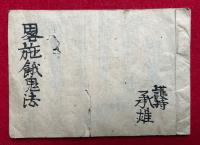 畧施餓鬼法
護持
承雄